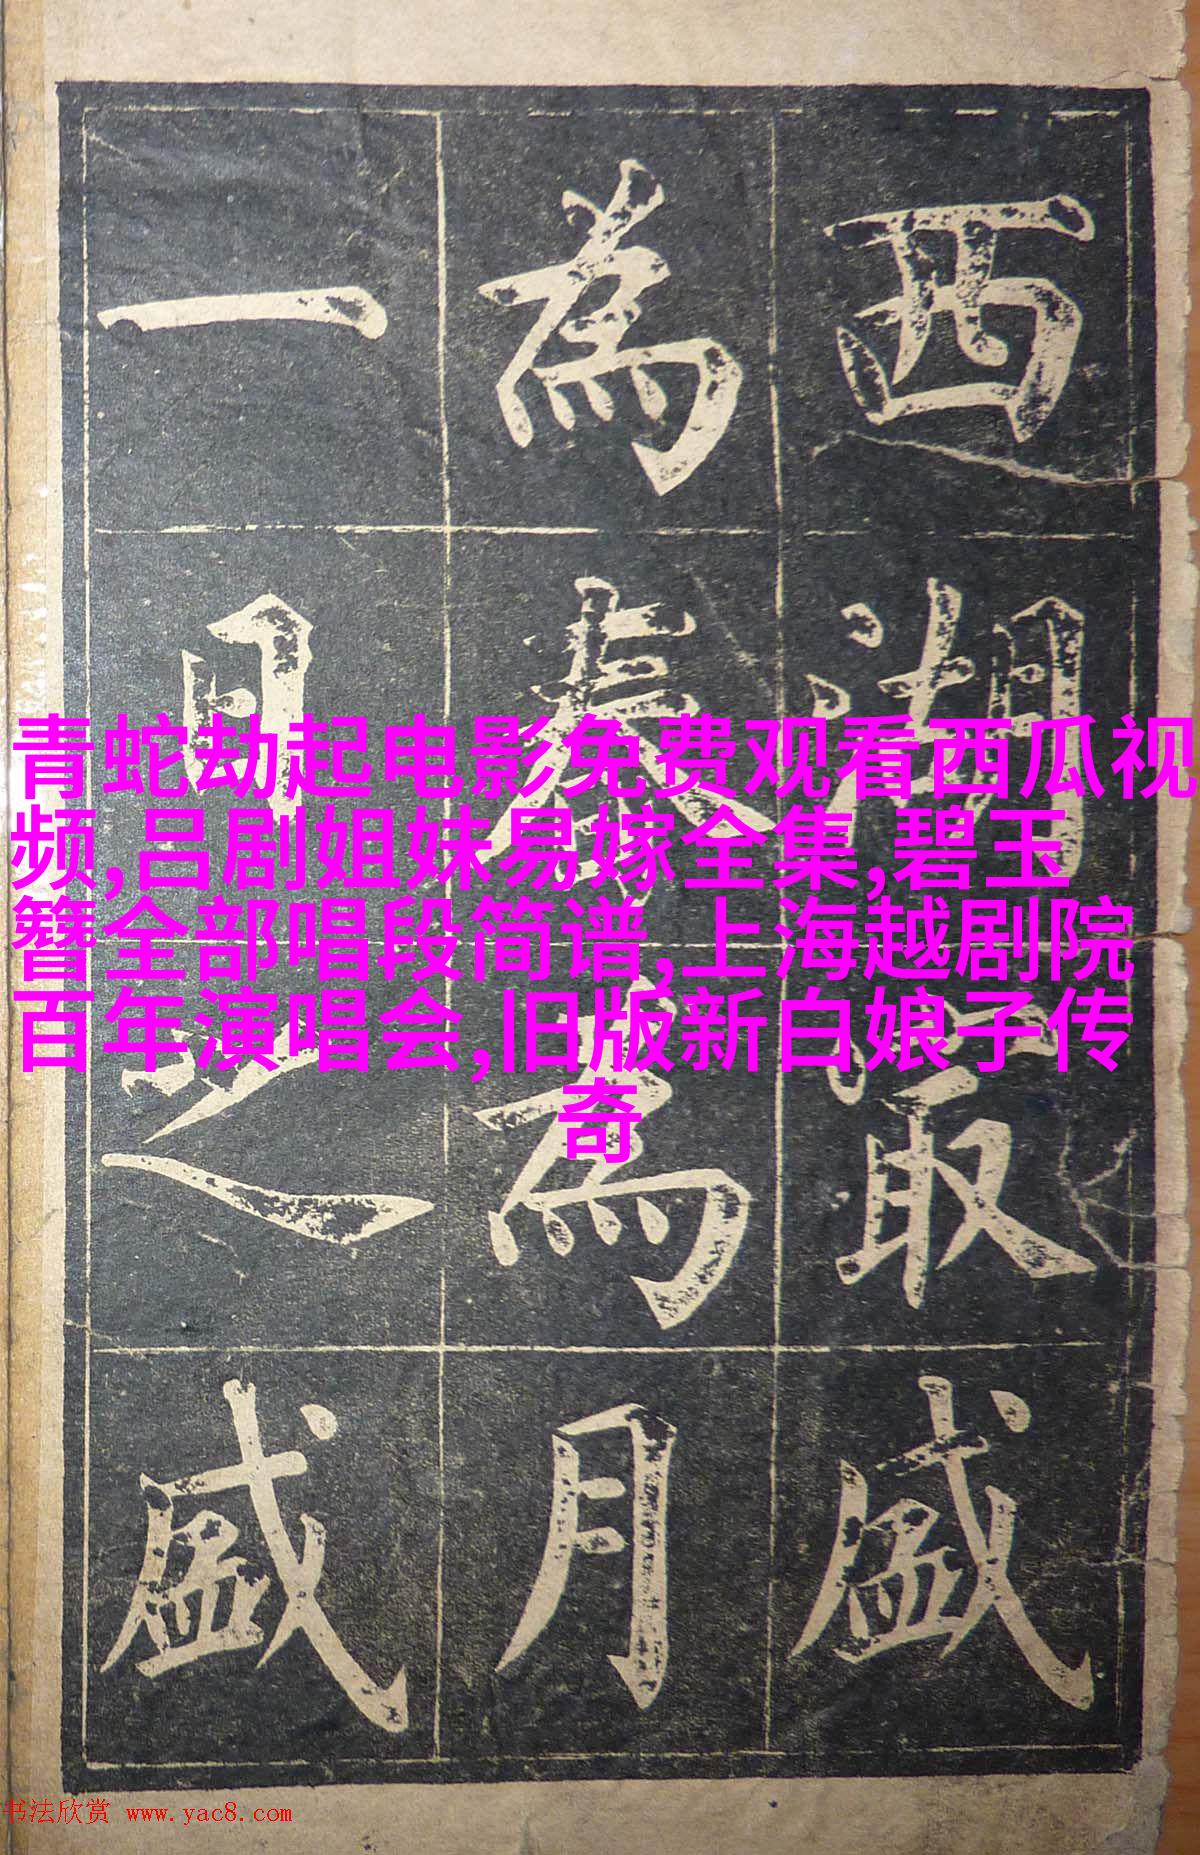 西湖最盛
為春為月
一日之盛
青蛇劫起电影免费观看西瓜视
频,吕剧姐妹易嫁全集,碧玉
簪全部唱段简谱,上海越剧院
百年演唱会,旧版新白娘子传
奇
书法欣赏 www.yac8.com